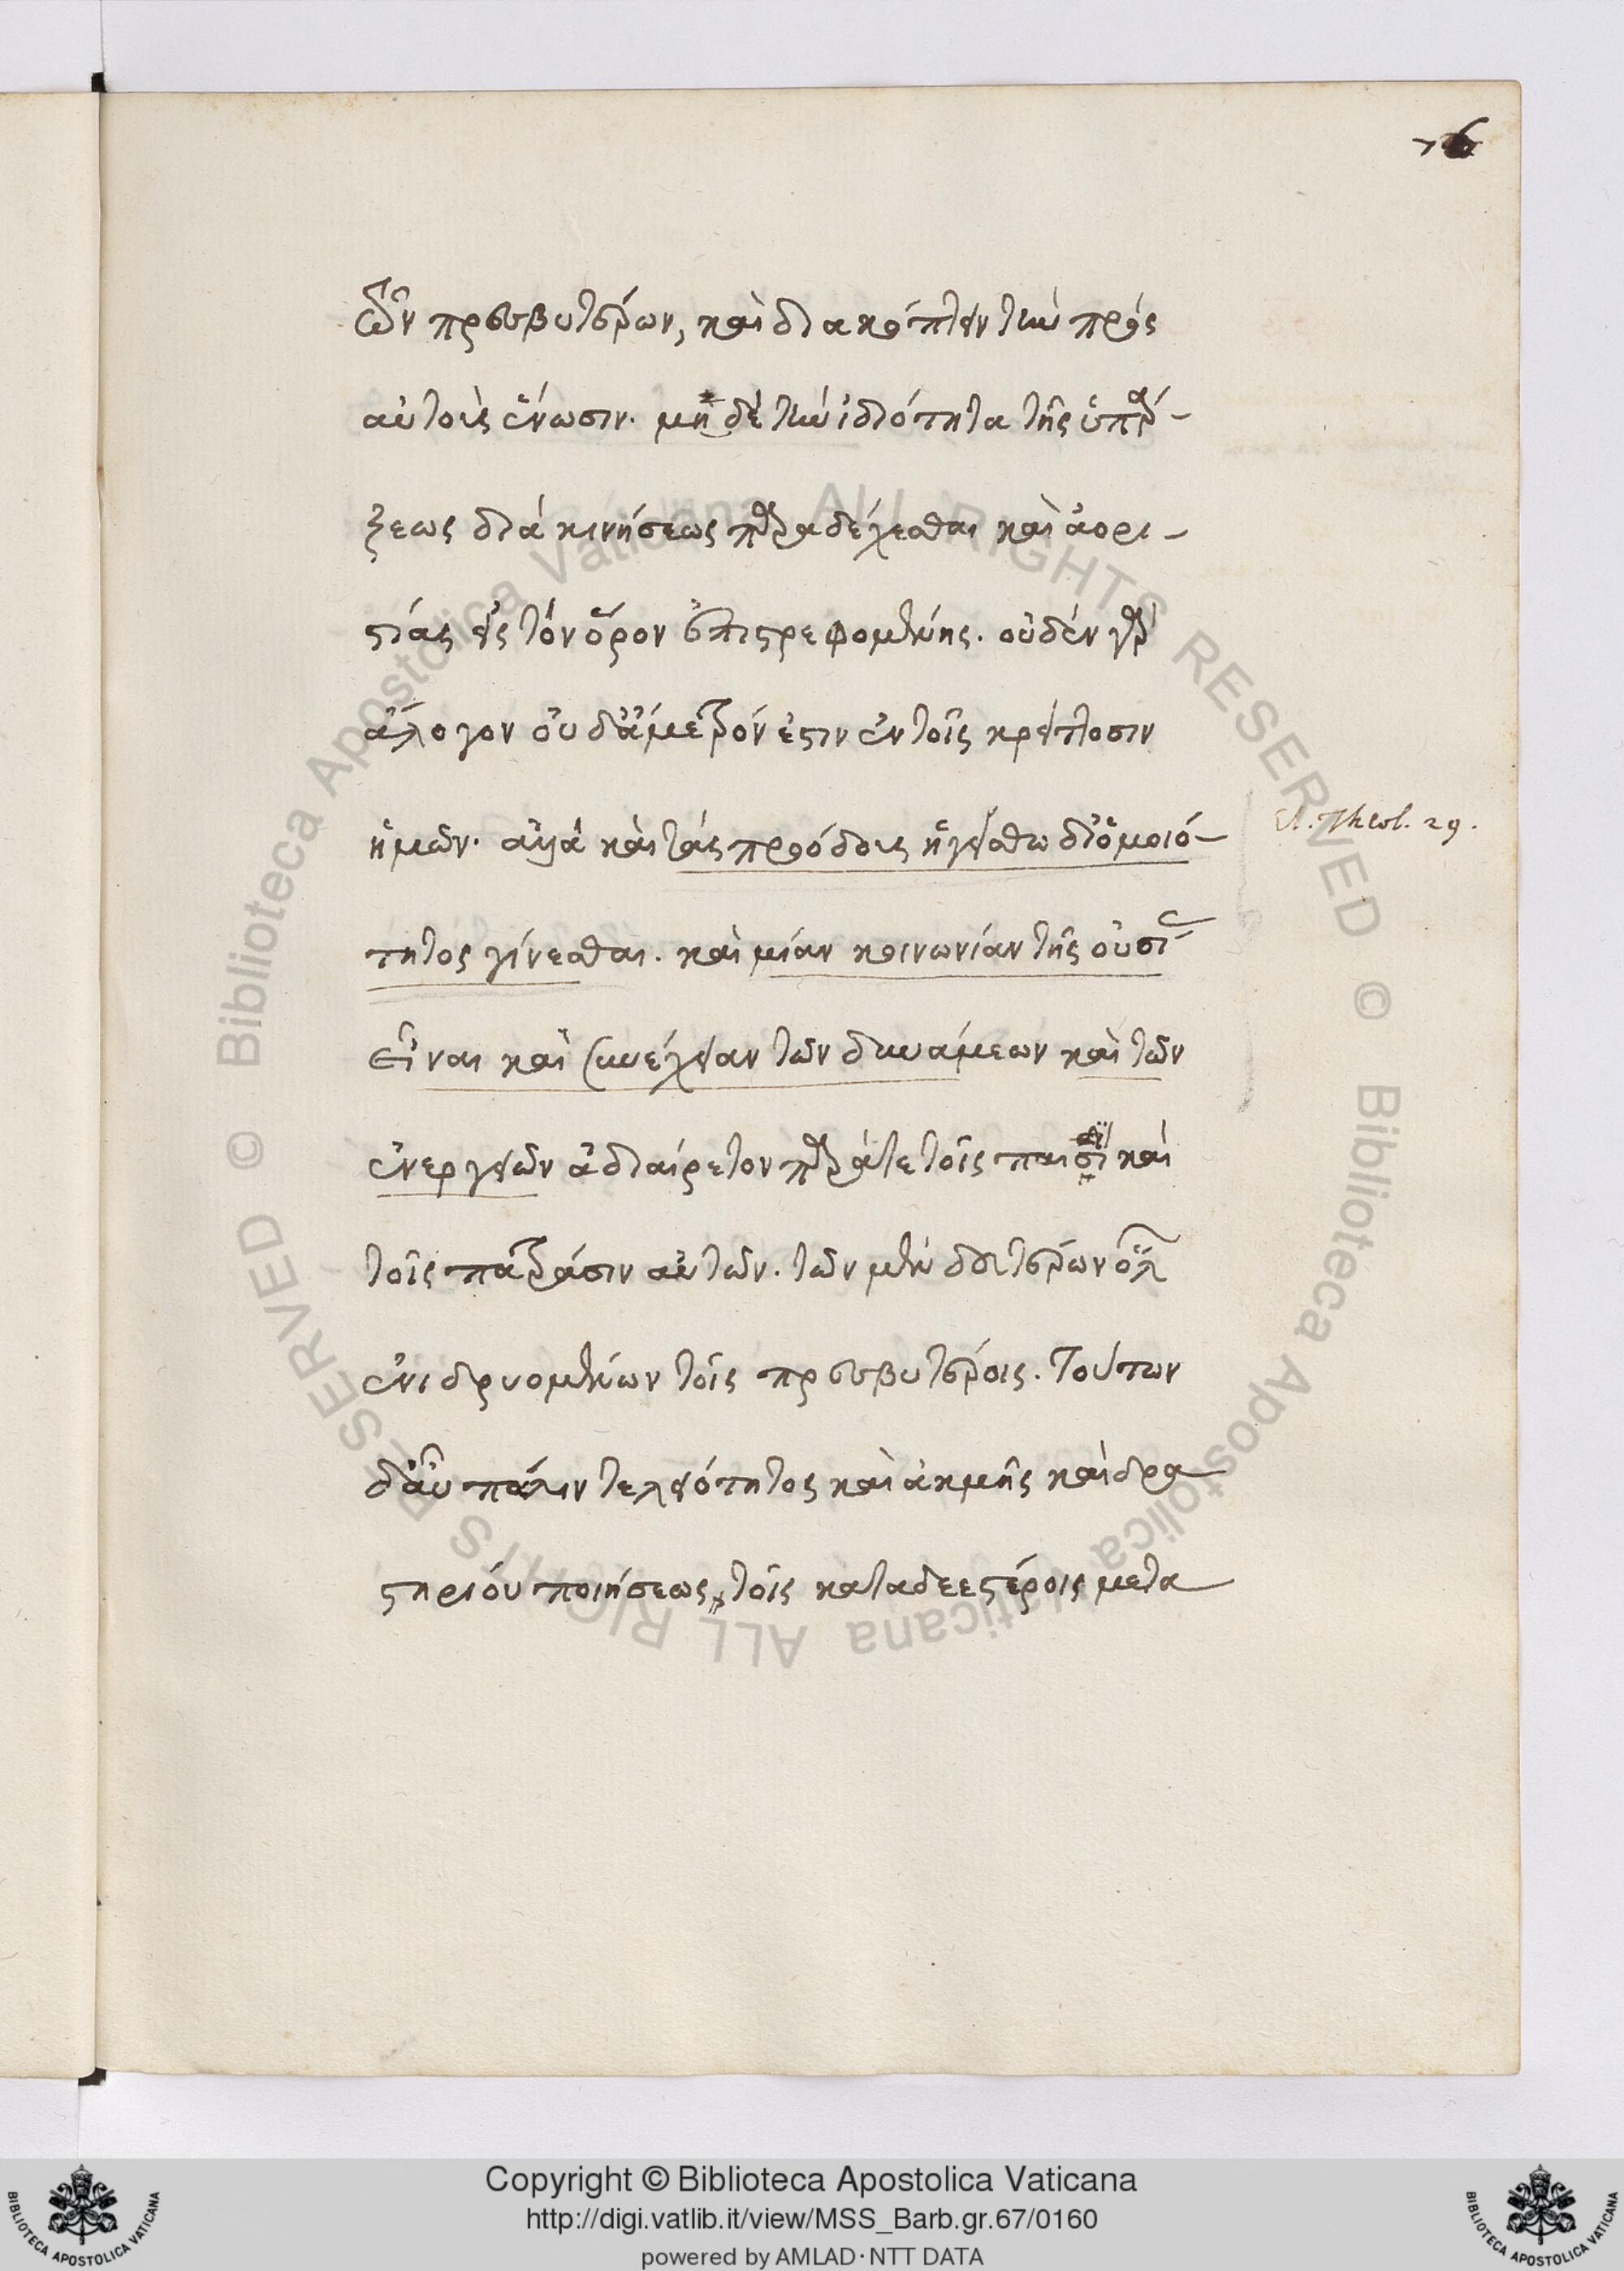 76
τῶν πρεσβυτέρων, καὶ διακόπτειν τὴν πρὸς
αὐτοὺς ἕνωσιν. μὴ δὲ τὴν ἰδιότητα τῆς ὑπάρ-
ξεως διὰ κινήσεως παραδέχεσθαι καὶ ἀορι-
στίας εἰς τὸν ὅρον ἐπιστρεφομένης. οὐδὲν γὰρ
ἄλογον οὐδ' ἄμετρόν ἐστιν ἐν τοῖς κρείττοσιν
ἡμῶν. ἀλλὰ καὶ τὰς προόδους ἡγείσθω δι' ὁμοιό-
τητος γίνεσθαι. καὶ μίαν κοινωνίαν τῆς οὐσίας
εἶναι καὶ συνέχειαν τῶν δυνάμεων καὶ τῶν
ἐνεργειῶν ἀδιαίρετον παρά τε τοῖς παισὶ καὶ
τοῖς πατράσιν αὐτῶν. τῶν μὲν δευτέρων ὅλων
ἐνιδρυομένων τοῖς πρεσβυτέροις. τούτων
δ' αὖ πάλιν τελειότητος καὶ ἀκμῆς καὶ δρα
στηρίου ποιήσεως τοῖς καταδεεστέροις μετα
El. Theol. 29.
Copyright © Biblioteca Apostolica Vaticana
http://digi.vatlib.it/view/MSS_Barb.gr.67/0160
powered by AMLAD·NTT DATA
© Biblioteca Apostolica Vaticana ALL RIGHTS RESERVED
© Biblioteca Apostolica Vaticana ALL RIGHTS RESERVED
BIBLIOTECA APOSTOLICA VATICANA
BIBLIOTECA APOSTOLICA VATICANA